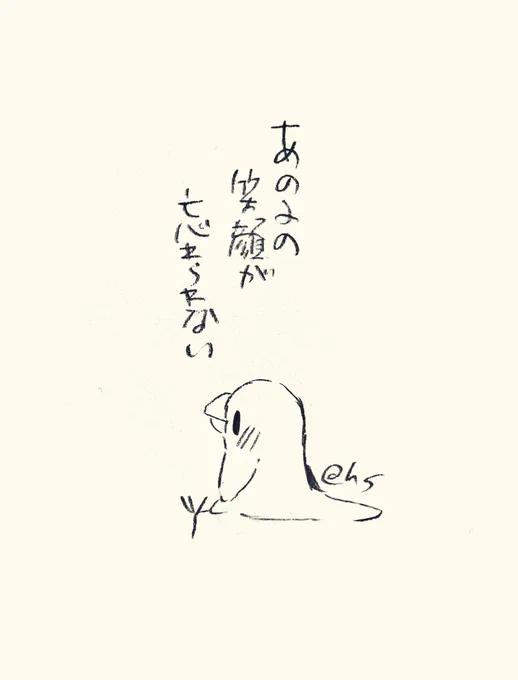 あの子の
笑顔が
忘れられない
@hs